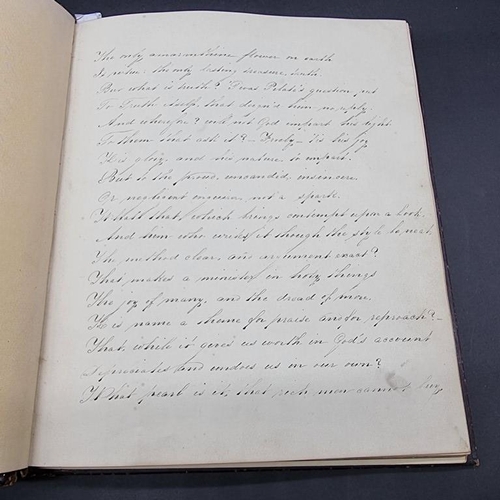 The only amaranthine flower on earth
Is virtue; the only lasting treasure, truth.
But what is truth? 'Twas Pilate's question, put
To Truth itself, that deign'd him no reply.
And wherefore? will not God impart his light
To them that ask it? – Freely – 'tis his joy
His glory, and his nature to impart.
But to the proud, uncandid, insincere
Or negligent inquirer, not a spark.
What that, which brings contempt upon a book,
And him who writes it though the style be neat,
The method clear, and argument exact?
That makes a minister in holy things
The joy of many, and the dread of more,
His name a theme for praise and for reproach? –
That, while it gives us worth in God's account
Depreciates and undoes us in our own?
What pearl is it, that rich men cannot buy,